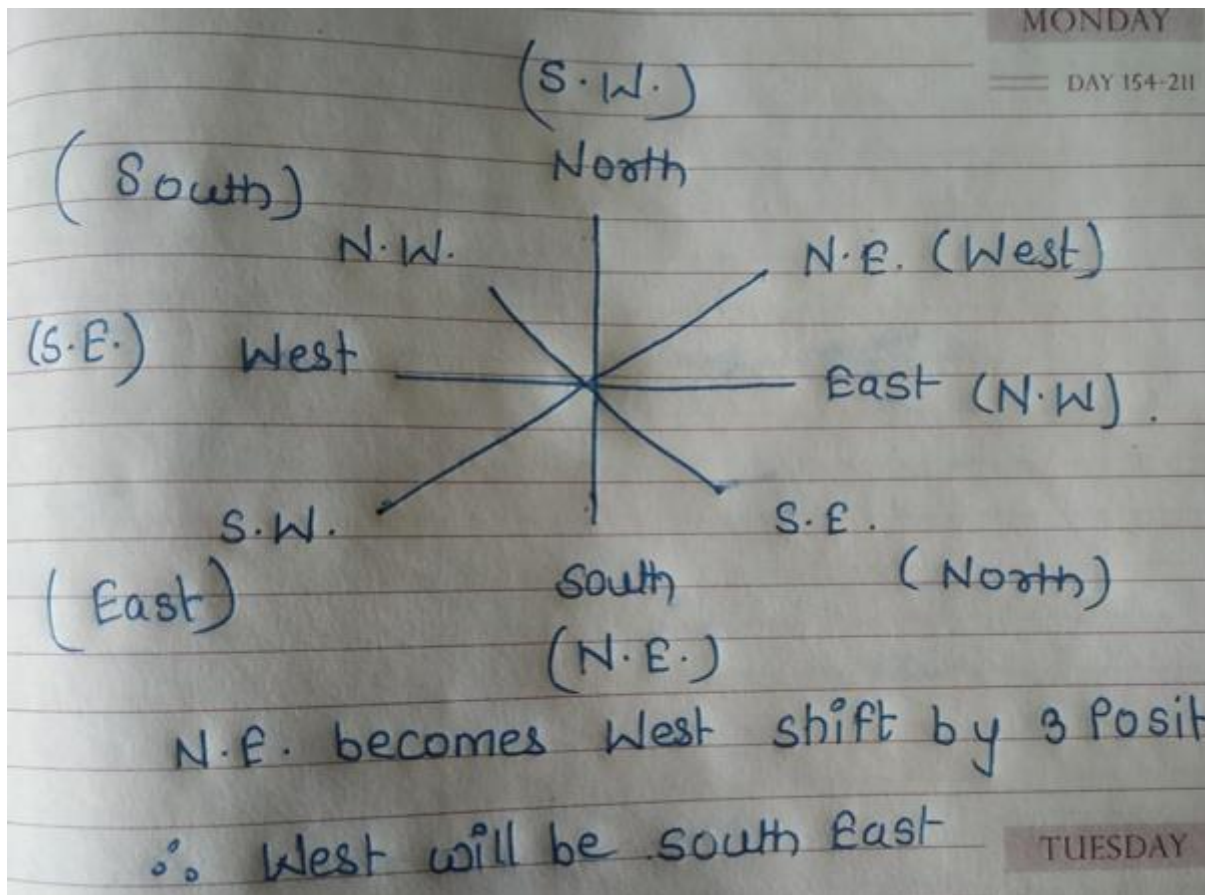 MONDAY
DAY 154-211
(S.W.)
North
(South)
N.W.
N.E. (West)
(S.E.) West
East (N.W).
S.W.
S.E.
(East)
South
(North)
(N.E.)
N.E. becomes West shift by 3 Posit
∴ West will be south East
TUESDAY